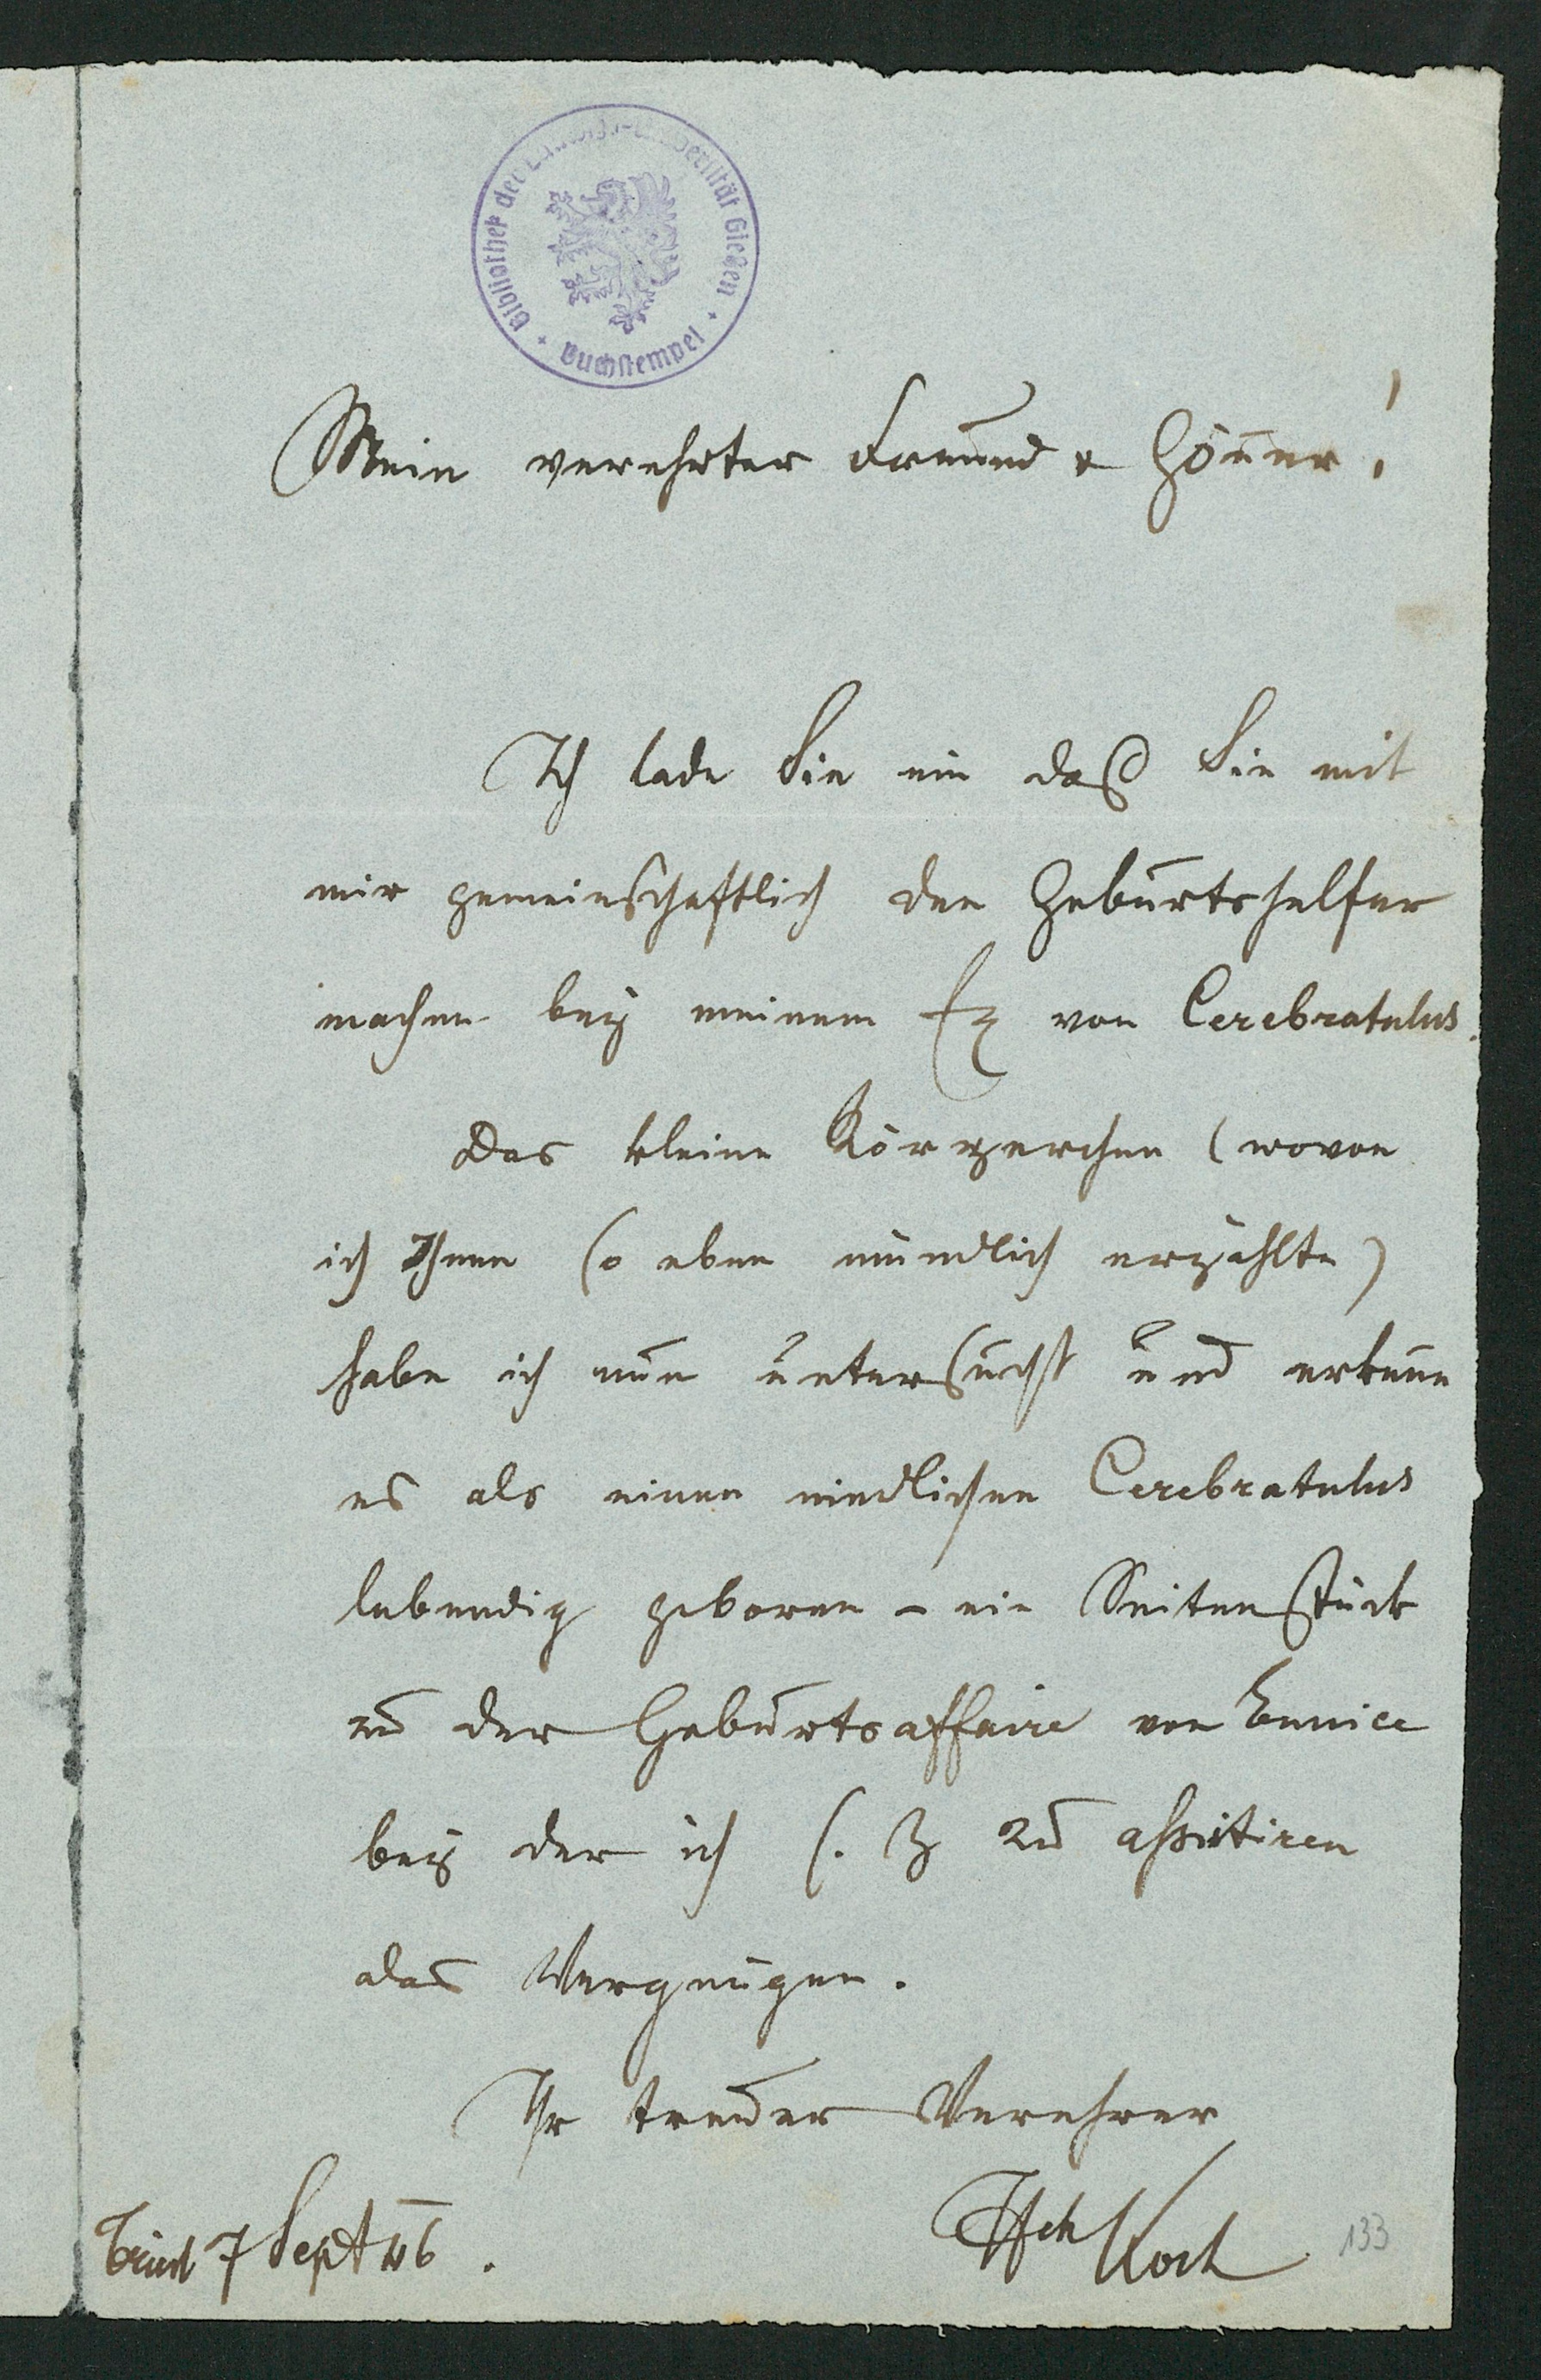 Bibliothek der Ludwigs-Universität Gießen
Buchstempel
Mein verehrter Freund & Gönner!
Ich lade Sie ein daß Sie mit
mir gemeinschaftlich den Geburtshelfer
machen bey meinem Ex von Cerebratulus.
Das kleine Körperchen (wovon
ich Ihnen so eben mündlich erzählte)
habe ich nun untersucht und erkenne
es als einen niedlichen Cerebratulus
lebendig geboren – ein Seitenstück
zu der Geburtsaffaire von Eunice
bey der ich s. Z zu assistiren
das Vergnügen.
Ihr treuer Verehrer
Koch
Triest 7 Sept 46.
133